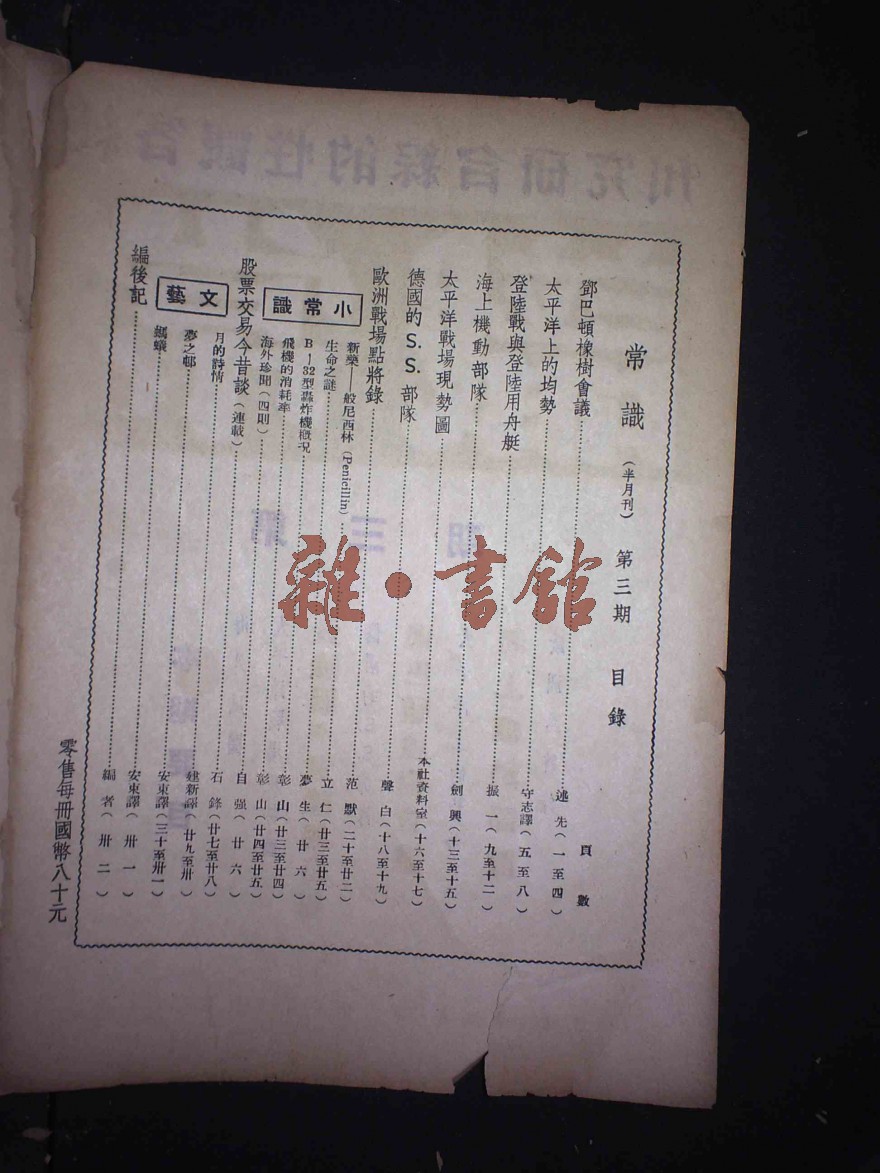 常識 （半月刊） 第三期 目錄
頁數
鄧巴頓橡樹會議……述先（一至四）
太平洋上的均勢……守志譯（五至八）
登陸戰與登陸用舟艇……振一（九至十二）
海上機動部隊……劍興（十三至十五）
太平洋戰場現勢圖……本社資料室（十六至十七）
德國的S.S.部隊……聲白（十八至十九）
歐洲戰場點將錄……范默（二十至廿二）
小常識
新藥——般尼西林（Penicillin）……立仁（廿三至廿五）
生命之謎……夢生（廿六）
B－32型轟炸機概況……彰山（廿三至廿四）
飛機的消耗率……彰山（廿四至廿五）
海外珍聞（四則）……自强（廿六）
股票交易今昔談（連載）……石鋒（廿七至廿八）
文藝
月的詩情……建新譯（廿九至卅）
夢之邨……安東譯（三十至卅一）
螞蟻……安東譯（卅一）
編後記……編者（卅二）
零售每冊國幣八十元
雜·書館